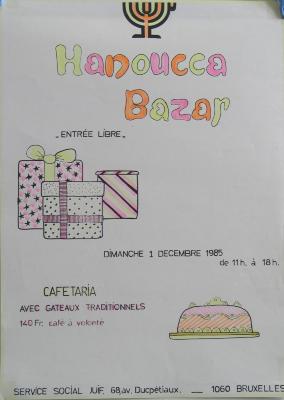 Hanoucca
Bazar
„ENTRÉE LIBRE"
DIMANCHE 1 DECEMBRE 1985
de 11h. à 18h.
CAFETARIA
AVEC GATEAUX TRADITIONNELS
140 Fr. café a volonté
SERVICE SOCIAL JUIF, 68,av. Ducpétiaux, __ 1060 BRUXELLES